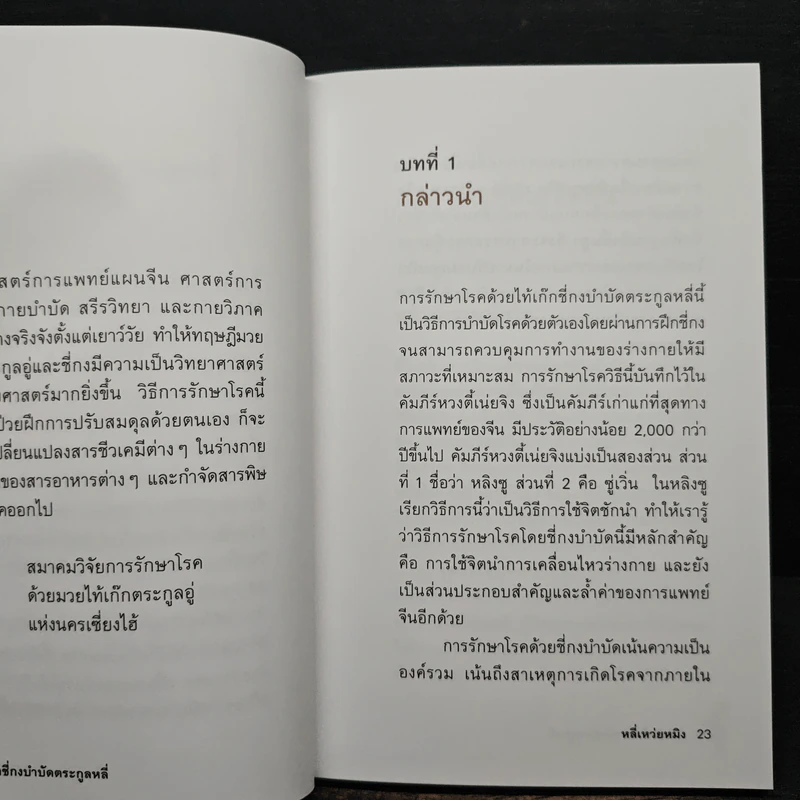 สตร์การแพทย์แผนจีน ศาสตร์การ
กายบำบัด สรีรวิทยา และกายวิภาค
างจริงจังตั้งแต่เยาว์วัย ทำให้ทฤษฎีมวย
กูลอู่และชี่กงมีความเป็นวิทยาศาสตร์
งศาสตร์มากยิ่งขึ้น วิธีการรักษาโรคนี้
ป่วยฝึกการปรับสมดุลด้วยตนเอง ก็จะ
ปลี่ยนแปลงสารชีวเคมีต่างๆ ในร่างกาย
ของสารอาหารต่างๆ และกำจัดสารพิษ
คออกไป
สมาคมวิจัยการรักษาโรค
ด้วยมวยไท้เก๊กตระกูลอู่
แห่งนครเซี่ยงไฮ้
ชี่กงบำบัดตระกูลหลี่
บทที่ 1
กล่าวนำ
การรักษาโรคด้วยไท้เก๊กชี่กงบำบัดตระกูลหลี่นี้
เป็นวิธีการบำบัดโรคด้วยตัวเองโดยผ่านการฝึกชี่กง
จนสามารถควบคุมการทำงานของร่างกายให้มี
สภาวะที่เหมาะสม การรักษาโรควิธีนี้บันทึกไว้ใน
คัมภีร์หวงตี้เน่ยจิง ซึ่งเป็นคัมภีร์เก่าแก่ที่สุดทาง
การแพทย์ของจีน มีประวัติอย่างน้อย 2,000 กว่า
ปีขึ้นไป คัมภีร์หวงตี้เน่ยจิงแบ่งเป็นสองส่วน ส่วน
ที่ 1 ชื่อว่า หลิงซู ส่วนที่ 2 คือ ซู่เวิ่น ในหลิงซู
เรียกวิธีการนี้ว่าเป็นวิธีการใช้จิตชักนำ ทำให้เรารู้
ว่าวิธีการรักษาโรคโดยชี่กงบำบัดนี้มีหลักสำคัญ
คือ การใช้จิตนำการเคลื่อนไหวร่างกาย และยัง
เป็นส่วนประกอบสำคัญและล้ำค่าของการแพทย์
จีนอีกด้วย
การรักษาโรคด้วยชี่กงบำบัดเน้นความเป็น
องค์รวม เน้นถึงสาเหตุการเกิดโรคจากภายใน
หลี่เหว่ยหมิง 23